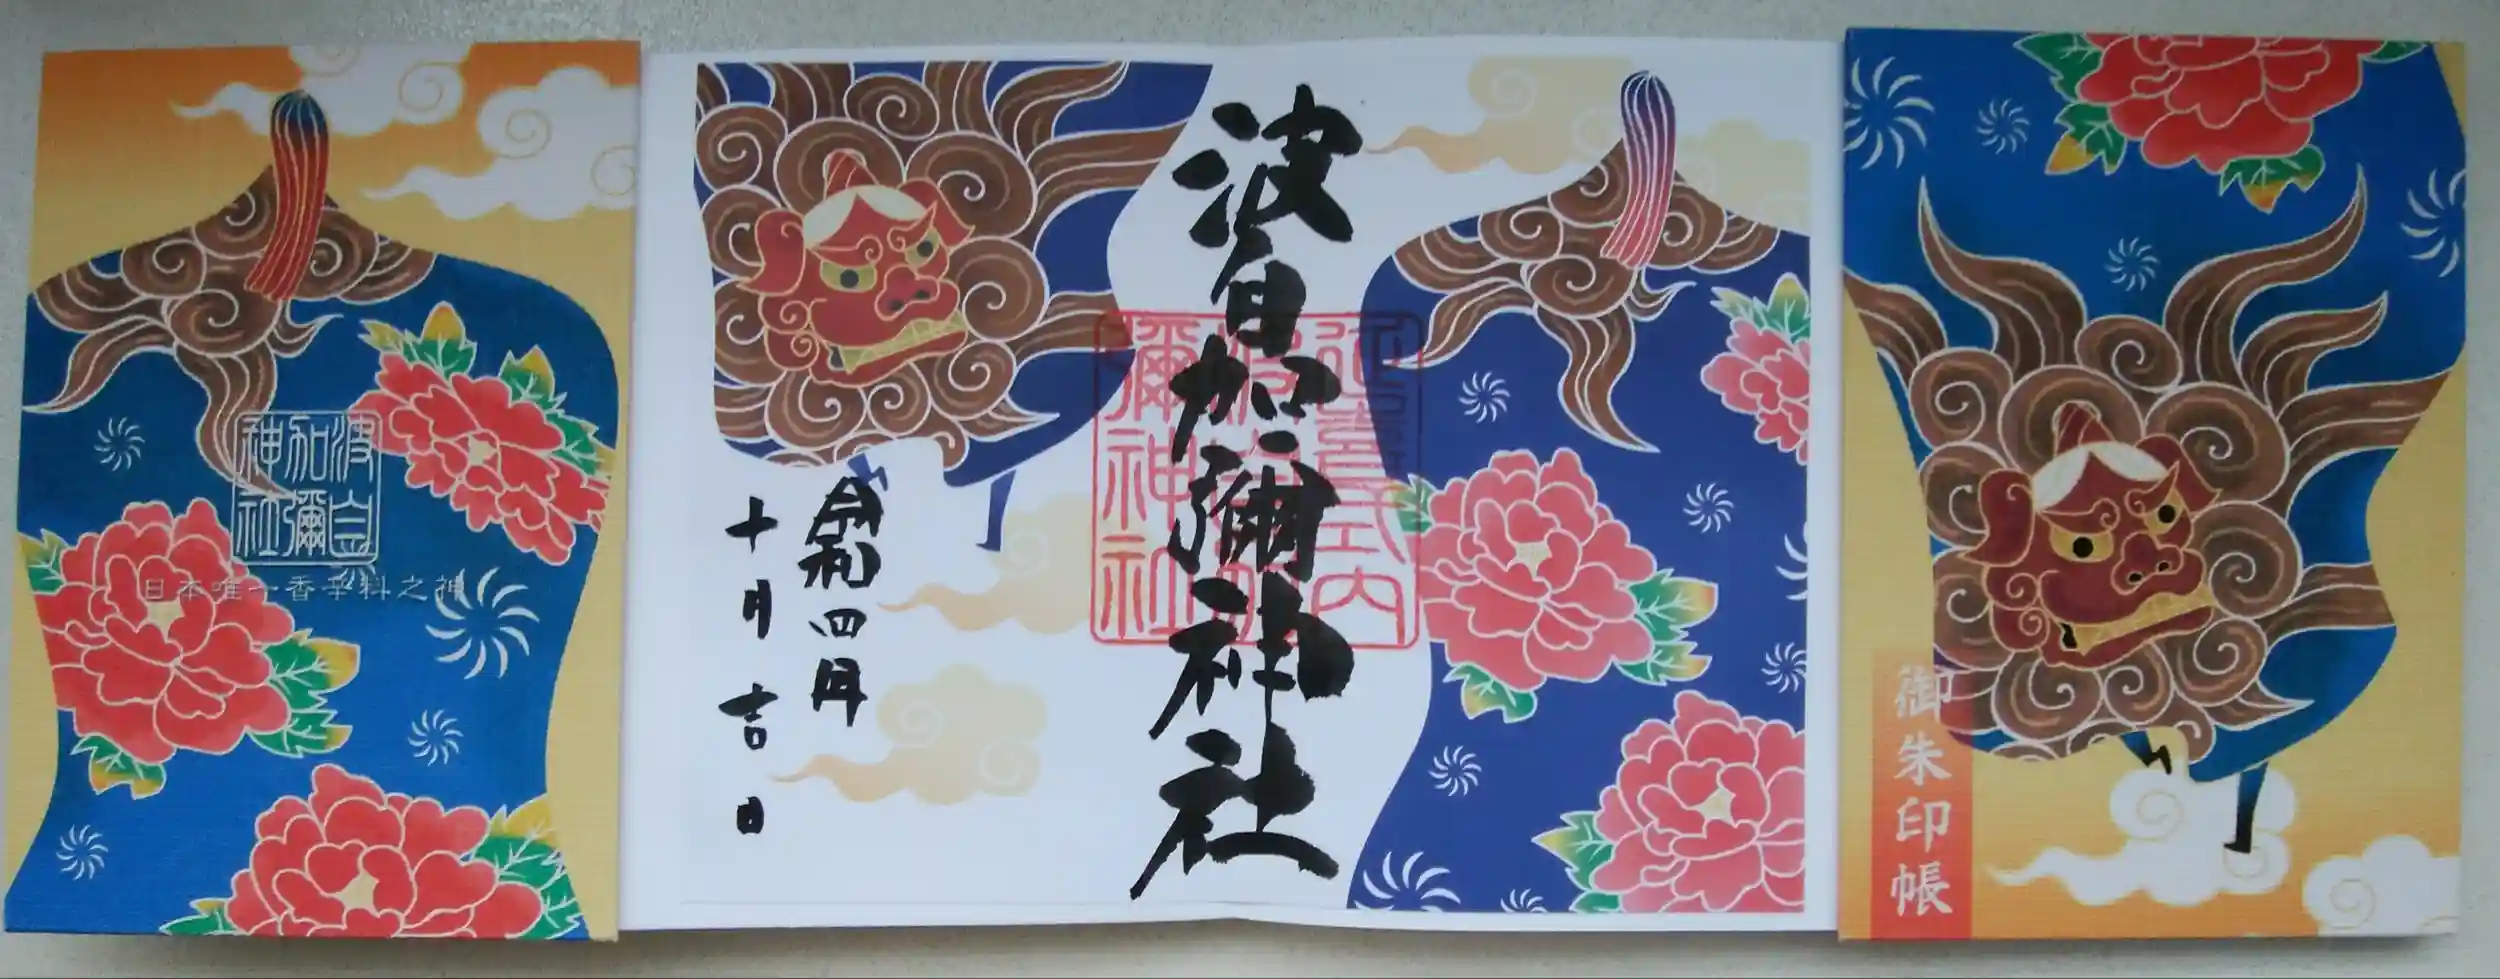 波自
加彌
神社
日本唯一香辛料之神
波自加彌神社
延喜式内
波自加
彌神社
令和四年
十月吉日
御朱印帳